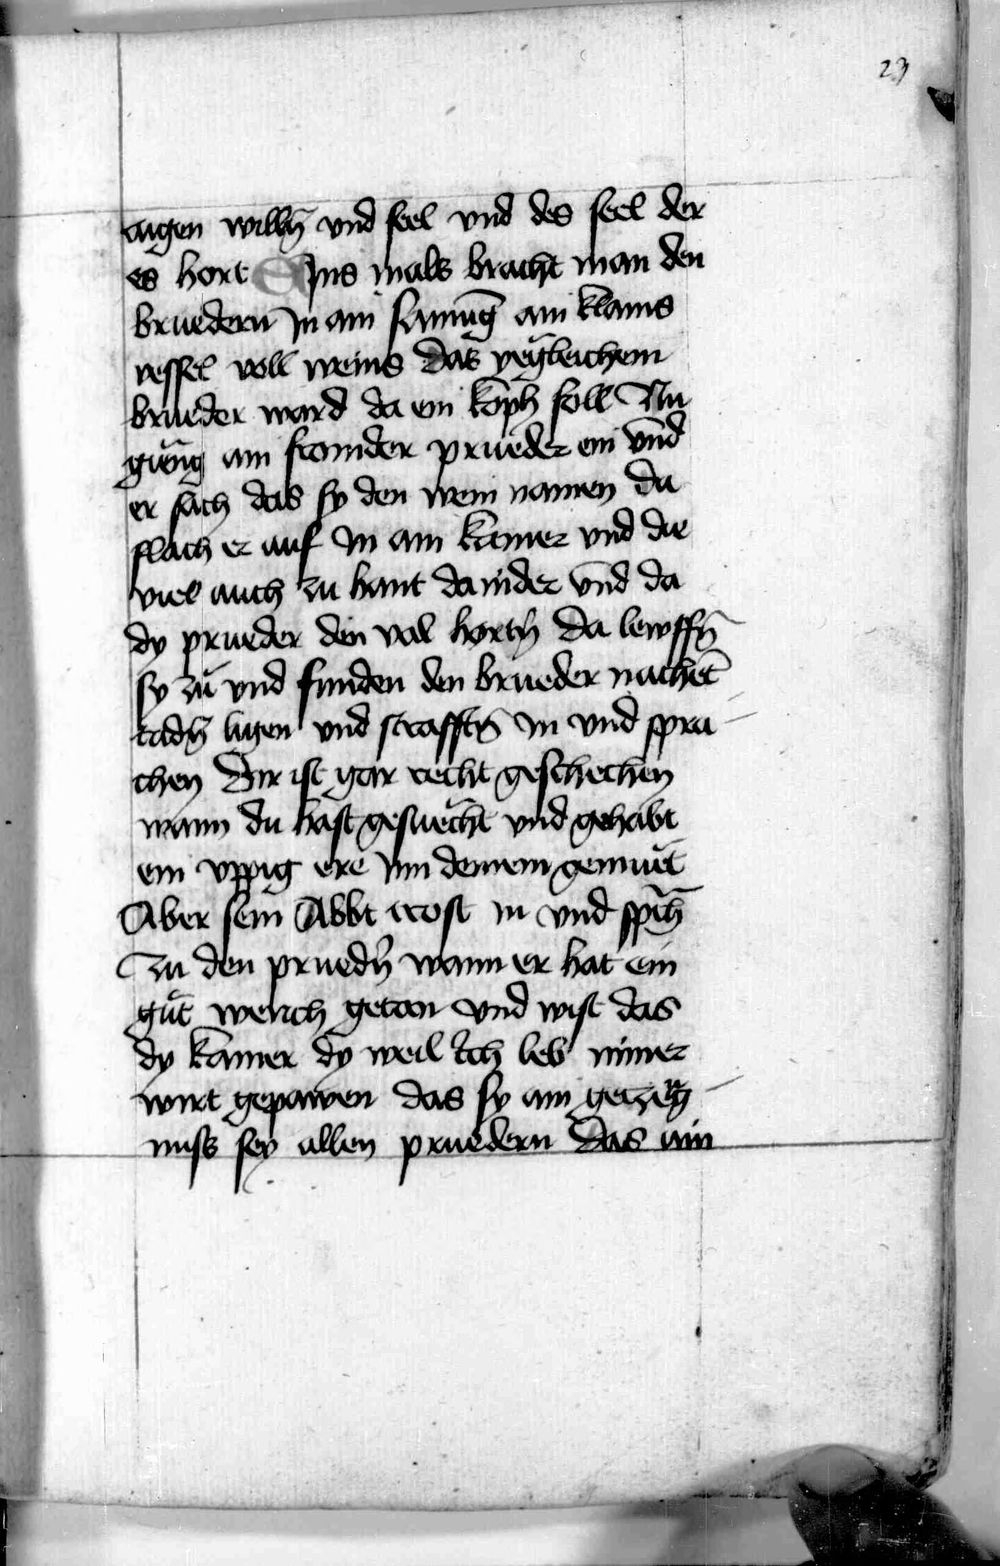 23
aigen willn̄ vnd seel vnd des seel der
es hort Ains mals bracht man den
bruedern Jn ain samūg ain klains
vessel voll weins das yegleichem
brueder ward da ein koph soll Nu
gieng ain fromder prueder ein vnd
er sach das sy den wein namen da
flach er auf Jn ain kamer vnd die
viel auch zu hant da nider vnd da
dy prueder den val hortn̄ Da lewffn̄
sy zu vnd funden den brueder nachet
todn̄ ligen vnd strafftn̄ Jn vnd spra
chen Dir ist gar recht geschechen
wann du hast gesuecht vnd gehabt
ein vppig ere Jnn deinem gemuet
Aber sein Abbt trost in vnd sp̄ch
zu den pruedn̄ wann er hat ein
guet werch getan vnd wist das
dy kamer dy weil Ich leb nimer
wirt gepawen das sy ain getzeug
nuss sey allen pruedern Das ain